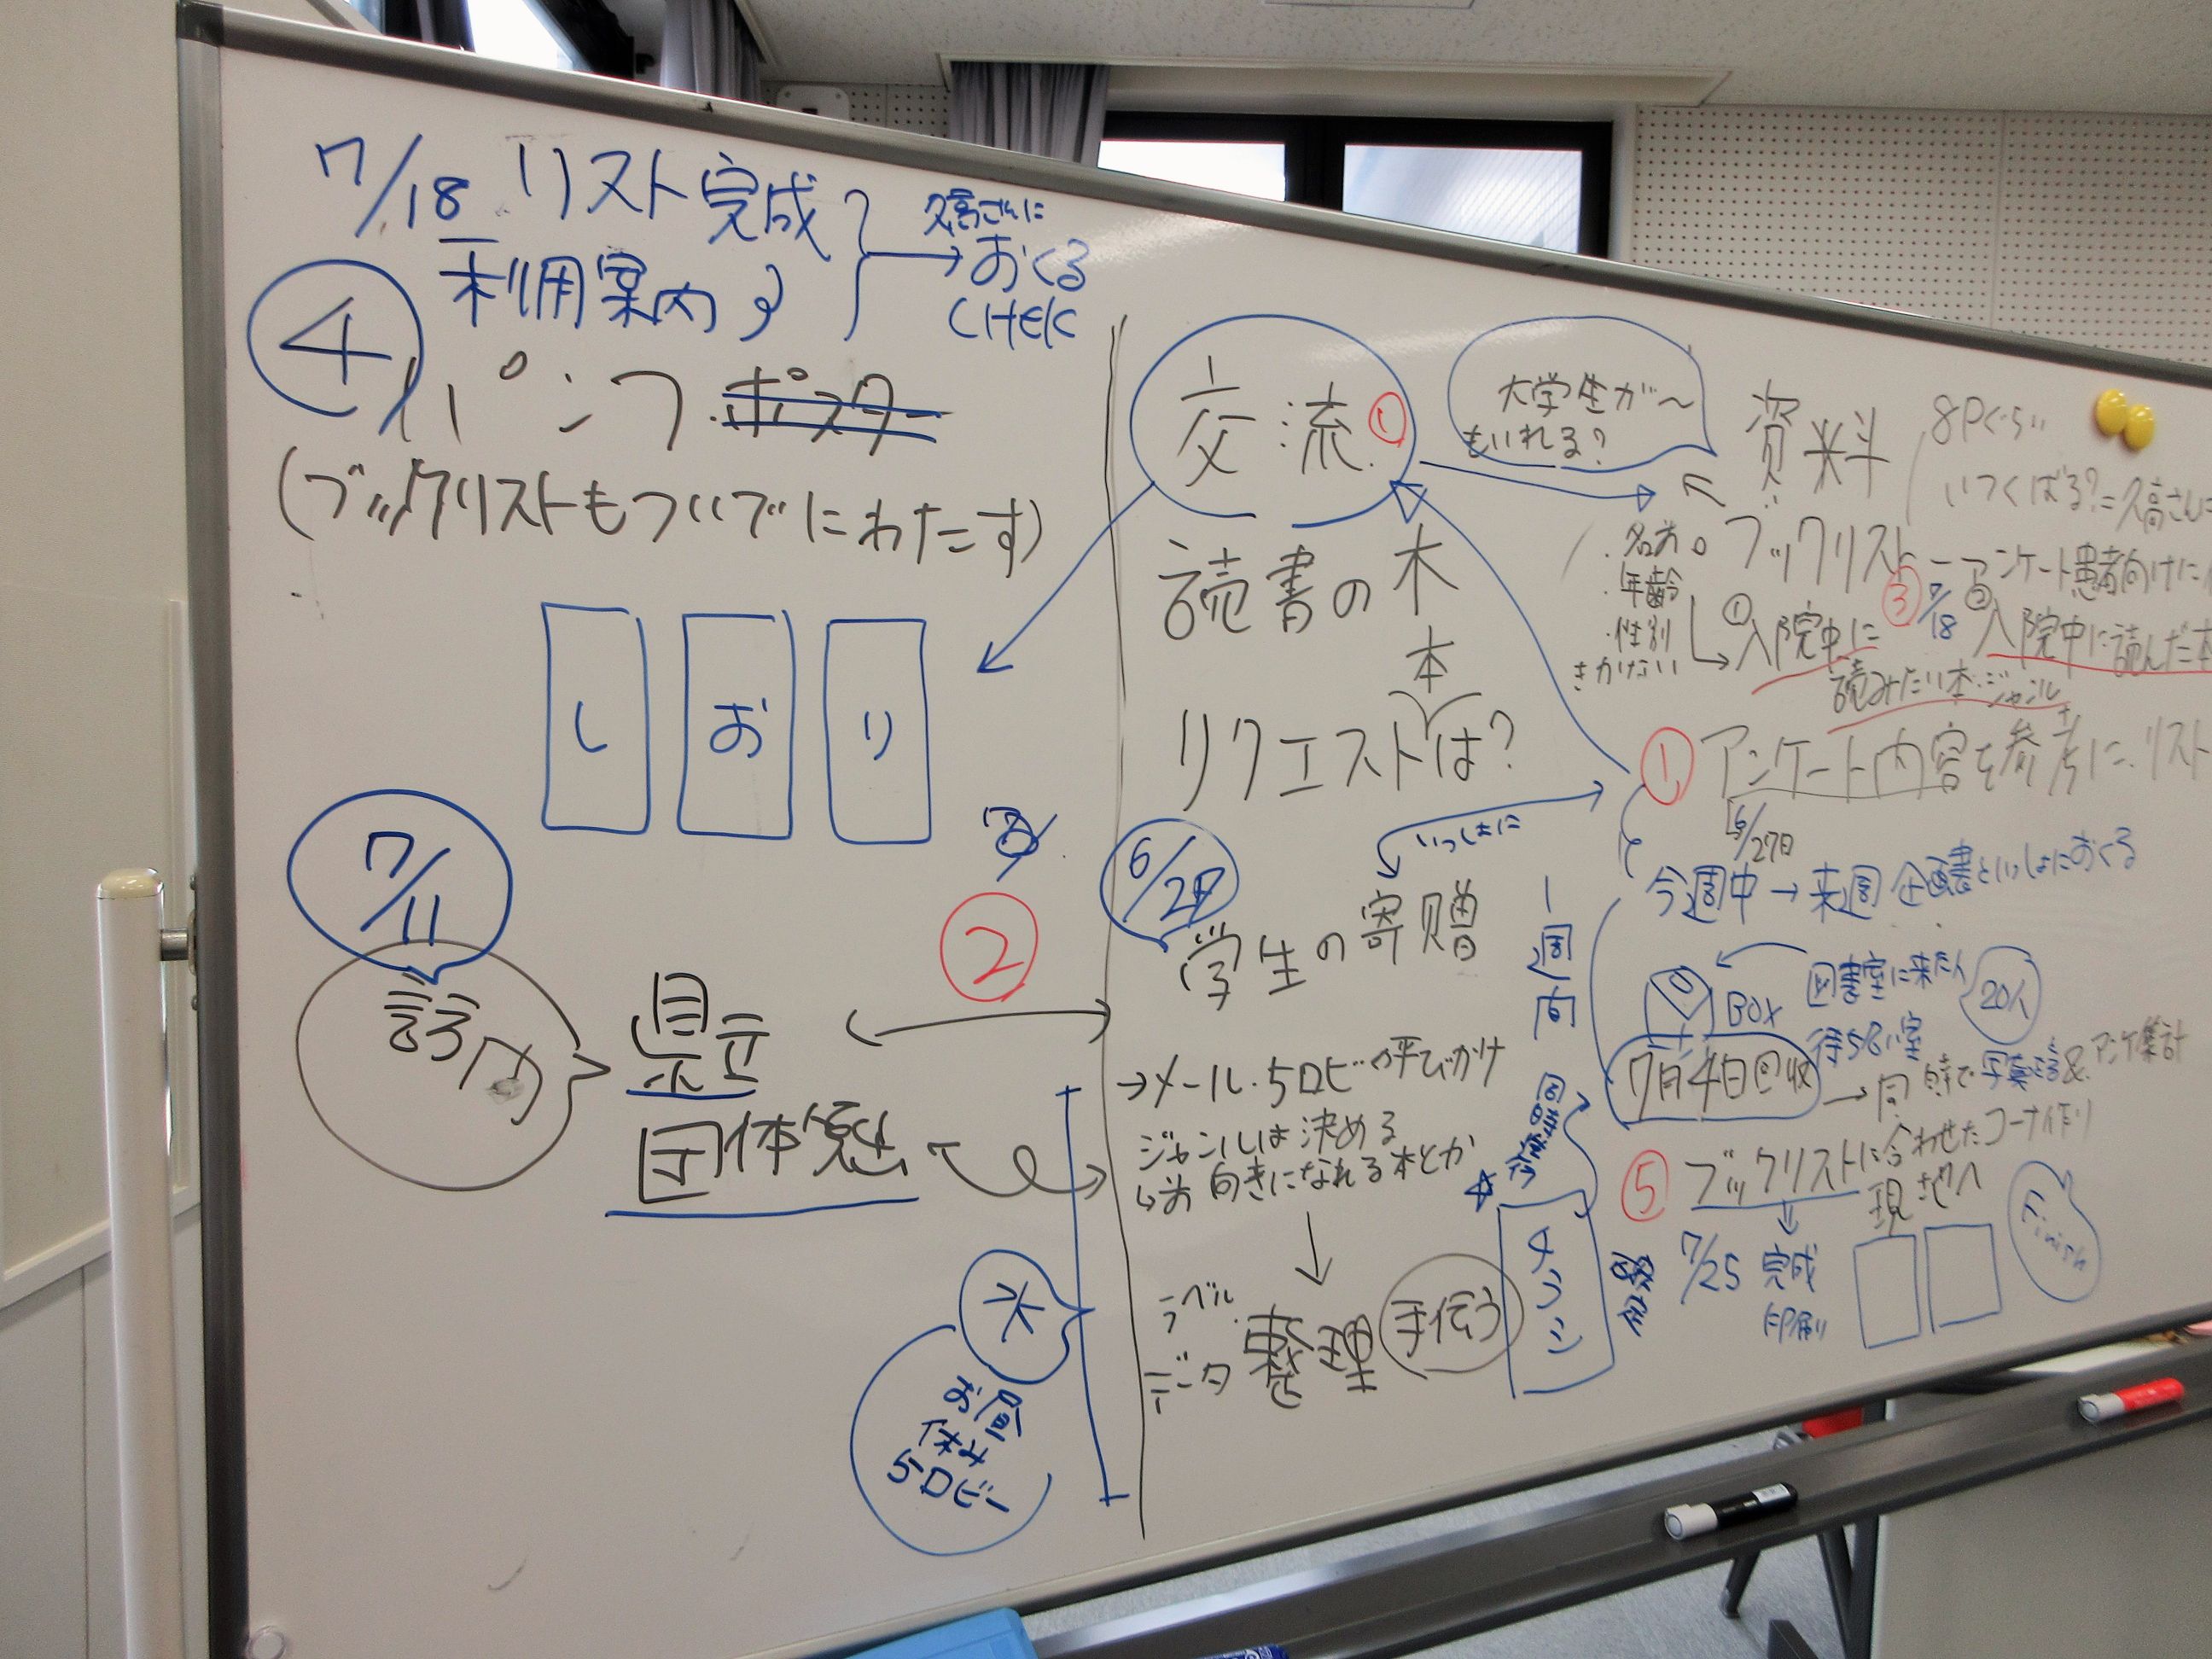 7/18 リスト完成
利用案内
久高さんに
おくる
CHEK
④
パンフ ポスター
(ブックリストもついでにわたす)
し お り
7/11
訪問
県立
団体貸出
②
水
お昼
休み
5ロビー
交流 ①
読書の木
本
リクエストは?
いっしょに
6/27
学生の寄贈
→メール・5ロビで呼びかけ
ジャンルは決める
↳前向きになれる本とか
ラベル
データ
整理
手伝う
大学生が〜
もいれる?
資料
8Pくらい
いつくばる?=久高さんに
・名前
・年齢
・性別
きかない
ブックリスト
アンケート患者向けに
①入院中に
読みたい本・ジャンル
③ 7/18
②入院中に読んだ本
① アンケート内容を参考に、リスト
6/27日
今週中→来週 企画書といっしょにおくる
一週間
BOX
図書室に来た人
待合い室
20人
7月4日回収
→同時で写真&アンケ集計
⑤ ブックリストに合わせたコーナ作り
現地へ
7/25 完成
印刷
チラシ
Finish